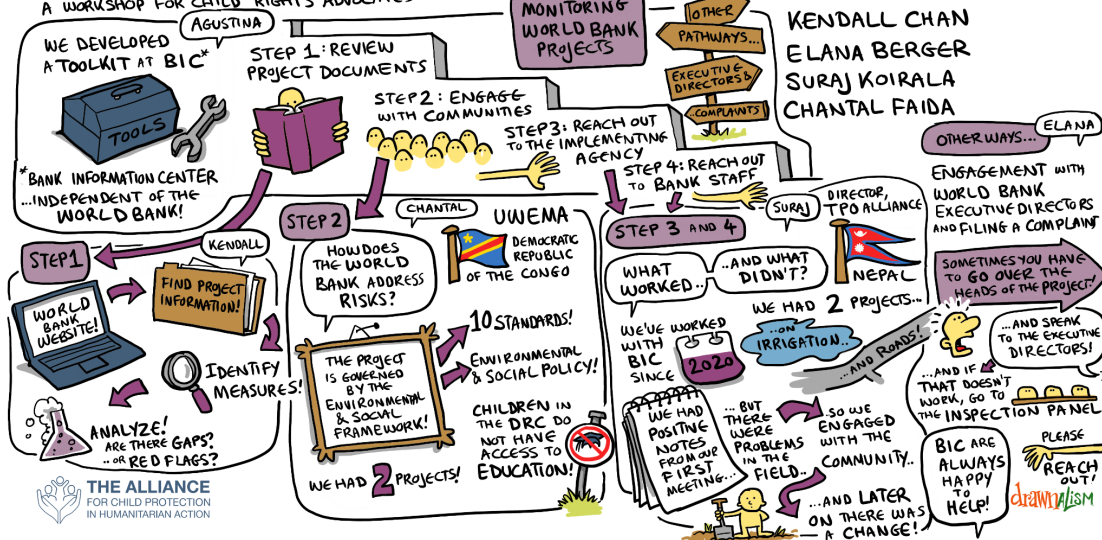 A WORKSHOP FOR CHILD RIGHTS ADVOCATES
AGUSTINA
WE DEVELOPED
A TOOLKIT AT BIC*
TOOLS
*BANK INFORMATION CENTER
...INDEPENDENT OF THE
WORLD BANK!
STEP 1: REVIEW
PROJECT DOCUMENTS
STEP 2: ENGAGE
WITH COMMUNITIES
STEP 3: REACH OUT
TO THE IMPLEMENTING
AGENCY
STEP 4: REACH OUT
TO BANK STAFF
MONITORING
WORLD BANK
PROJECTS
OTHER
PATHWAYS...
EXECUTIVE
DIRECTORS &
..COMPLAINTS
KENDALL CHAN
ELANA BERGER
SURAJ KOIRALA
CHANTAL FAIDA
STEP 1
KENDALL
WORLD
BANK
WEBSITE!
FIND PROJECT
INFORMATION!
IDENTIFY
MEASURES!
ANALYZE!
ARE THERE GAPS?
..OR RED FLAGS?
THE ALLIANCE
FOR CHILD PROTECTION
IN HUMANITARIAN ACTION
STEP 2
CHANTAL
UWEMA
DEMOCRATIC
REPUBLIC
OF THE CONGO
HOW DOES
THE WORLD
BANK ADDRESS
RISKS?
THE PROJECT
IS GOVERNED
BY THE
ENVIRONMENTAL
& SOCIAL
FRAMEWORK!
10 STANDARDS!
ENVIRONMENTAL
& SOCIAL POLICY!
CHILDREN IN
THE DRC DO
NOT HAVE
ACCESS TO
EDUCATION!
WE HAD 2 PROJECTS!
STEP 3 AND 4
SURAJ
DIRECTOR,
TPO ALLIANCE
NEPAL
WHAT
WORKED..
..AND WHAT
DIDN'T?
WE HAD 2 PROJECTS...
...ON
IRRIGATION..
...AND ROADS!
WE'VE WORKED
WITH
BIC
SINCE
2020
WE HAD
POSITIVE
NOTES
FROM OUR
FIRST
MEETING...
...BUT
THERE
WERE
PROBLEMS
IN THE
FIELD..
..SO WE
ENGAGED
WITH THE
COMMUNITY..
...AND LATER
ON THERE WAS
A CHANGE!
OTHER WAYS...
ELANA
ENGAGEMENT WITH
WORLD BANK
EXECUTIVE DIRECTORS
AND FILING A COMPLAINT
SOMETIMES YOU HAVE
TO GO OVER THE
HEADS OF THE PROJECT!
...AND SPEAK
TO THE EXECUTIVE
DIRECTORS!
...AND IF
THAT DOESN'T
WORK, GO TO
THE INSPECTION PANEL
BIC ARE
ALWAYS
HAPPY
TO
HELP!
PLEASE
REACH
OUT!
drawnalism